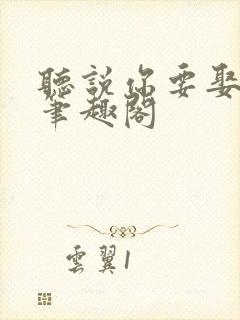 聽說你要娶
筆趣閣
雲翼1